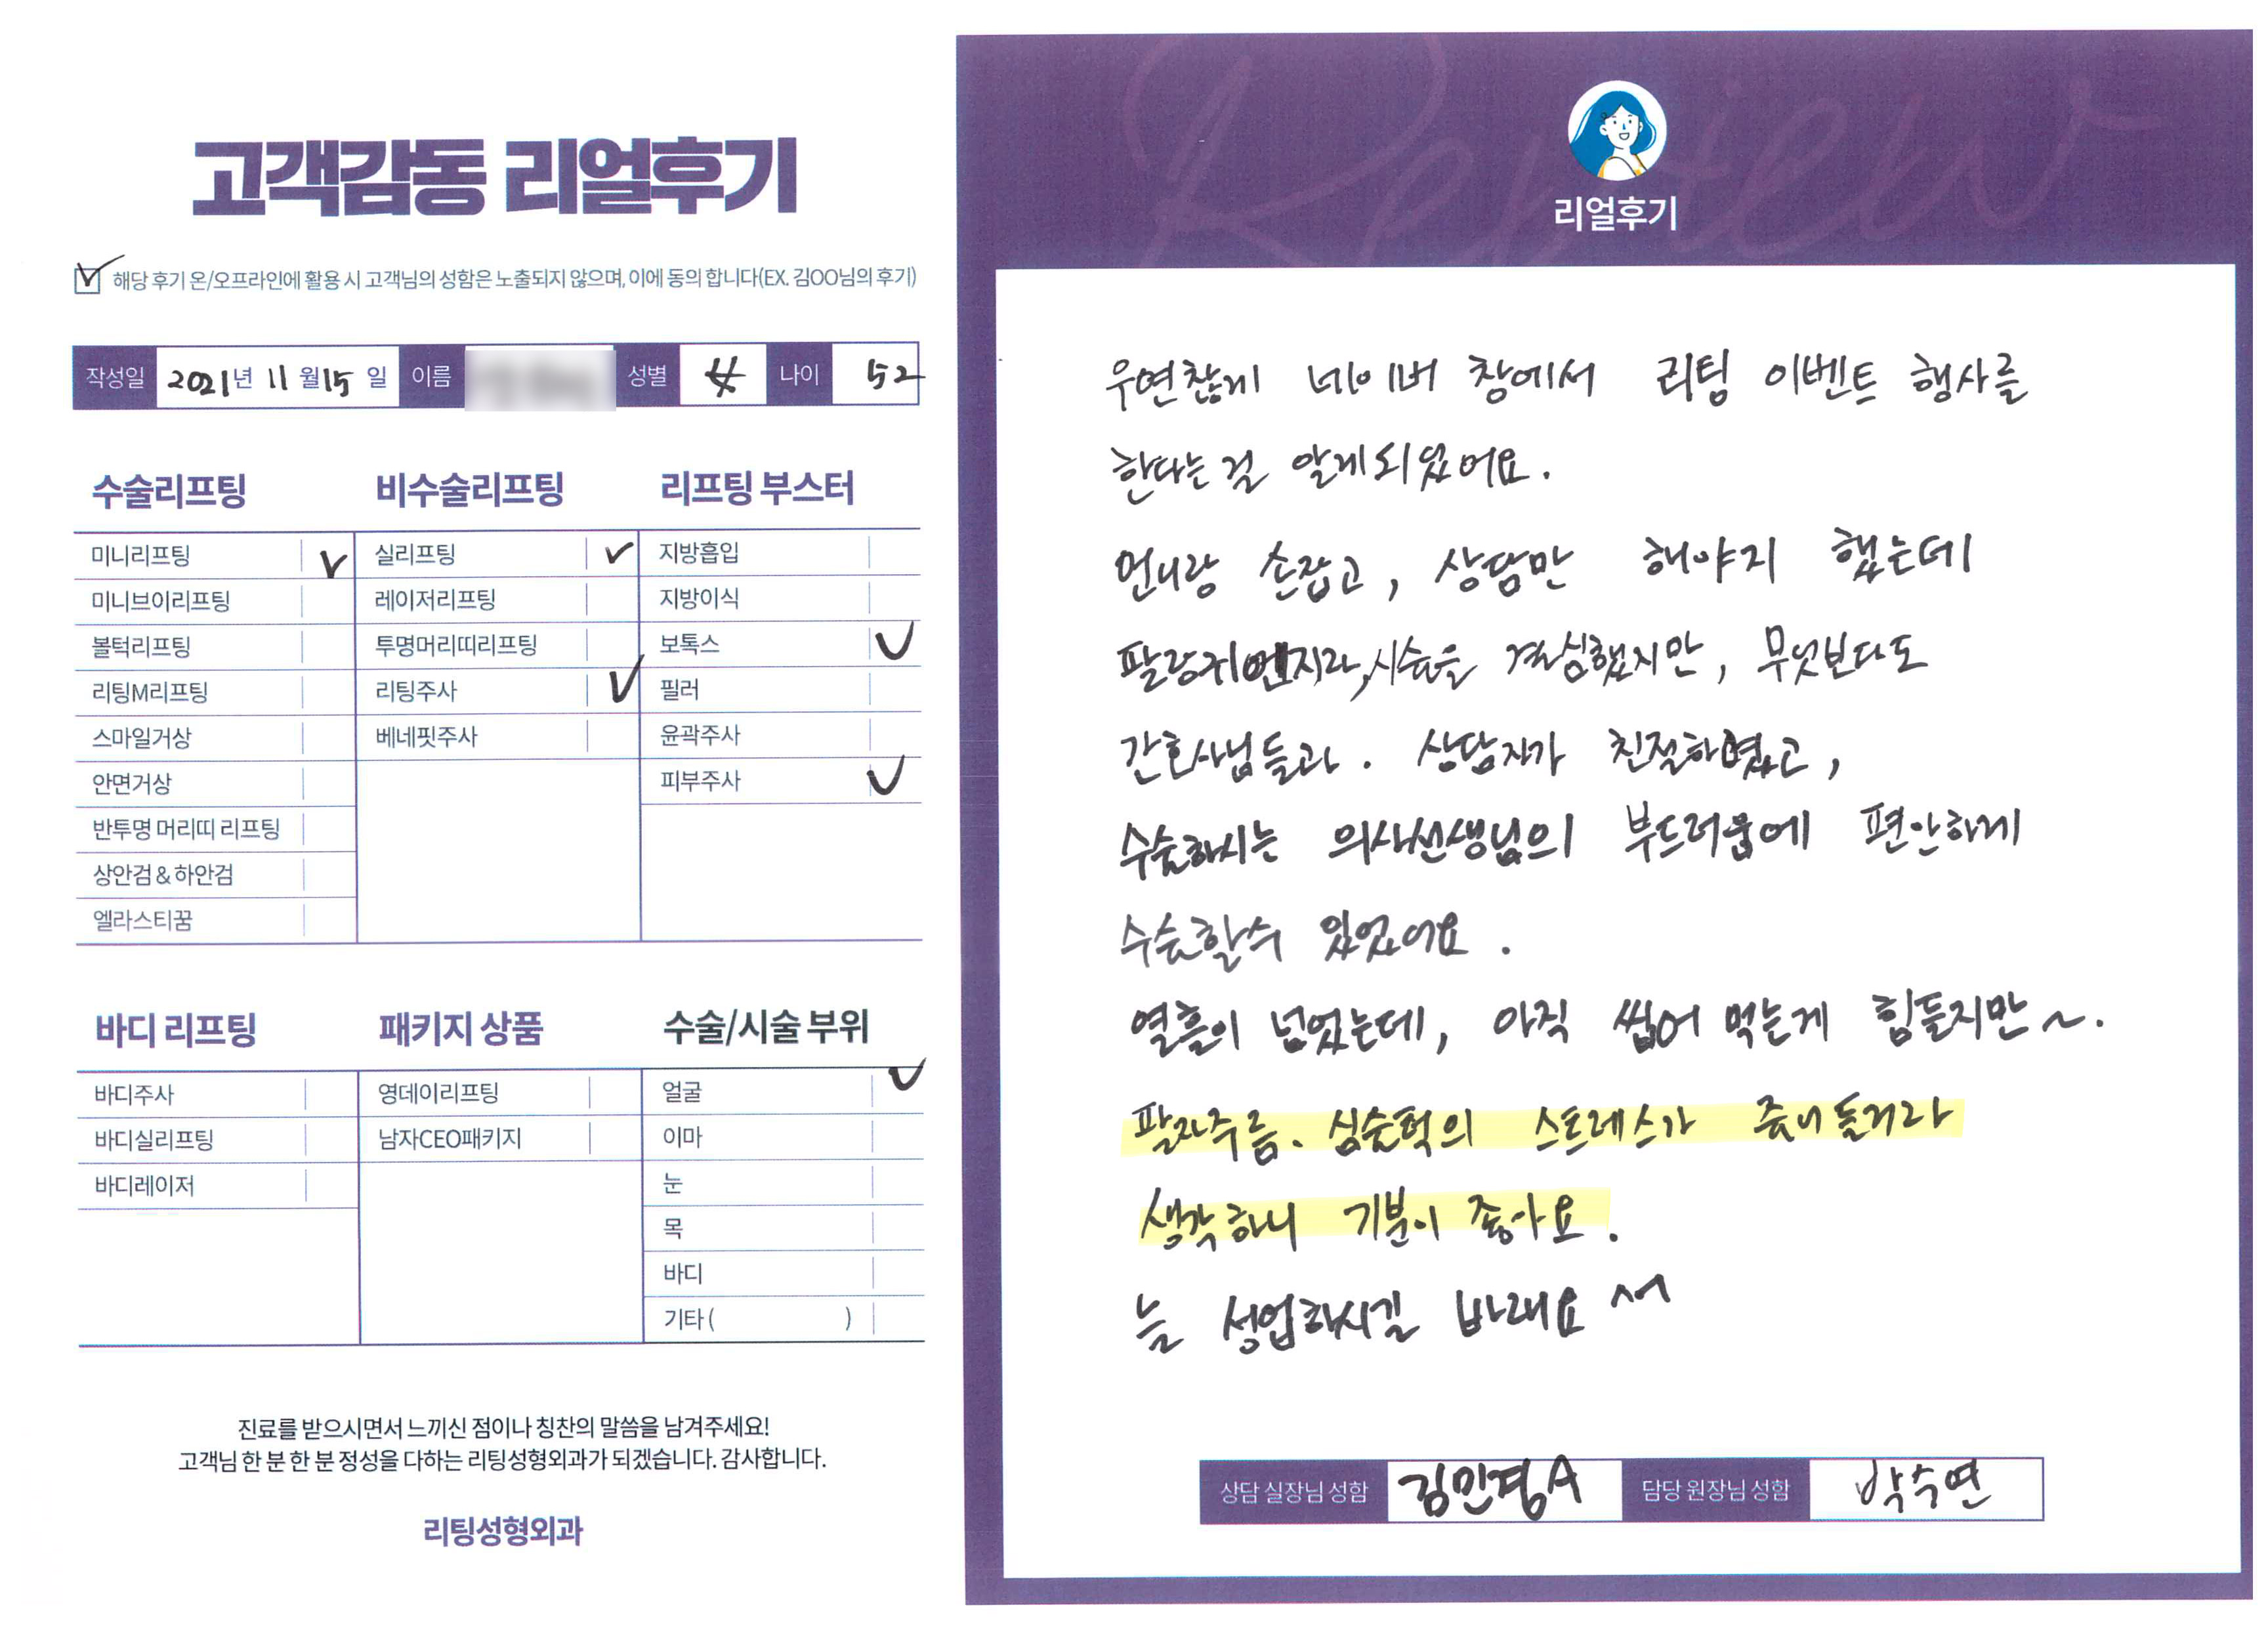 고객감동 리얼후기
해당 후기 온/오프라인에 활용 시 고객님의 성함은 노출되지 않으며, 이에 동의 합니다(EX. 김OO님의 후기)
작성일 2021년 11월 15일 이름 성별 女 나이 52
수술리프팅
미니리프팅
미니브이리프팅
볼턱리프팅
리팅M리프팅
스마일거상
안면거상
반투명 머리띠 리프팅
상안검 & 하안검
엘라스티꿈
비수술리프팅
실리프팅
레이저리프팅
투명머리띠리프팅
리팅주사
베네핏주사
리프팅 부스터
지방흡입
지방이식
보톡스
필러
윤곽주사
피부주사
바디 리프팅
바디주사
바디실리프팅
바디레이저
패키지 상품
영데이리프팅
남자CEO패키지
수술/시술 부위
얼굴
이마
눈
목
바디
기타 ( )
진료를 받으시면서 느끼신 점이나 칭찬의 말씀을 남겨주세요!
고객님 한 분 한 분 정성을 다하는 리팅성형외과가 되겠습니다. 감사합니다.
리팅성형외과
Review
리얼후기
우연찮게 네이버 창에서 리팅 이벤트 행사를
한다는걸 알게되었어요.
언니랑 손잡고, 상담만 해야지 했는데
팔랑귀 시술을 결심했지만, 무엇보다도
간호사님들과. 상담자가 친절하였고,
수술하시는 의사선생님의 부드러움에 편안하게
수술할수 있었어요.
열흘이 넘었는데, 아직 씹어 먹는게 힘들지만~.
팔자주름. 심술턱의 스트레스가 줄어들거라
생각하니 기분이 좋아요.
늘 성업하시길 바래요 ^^
상담 실장님 성함 김민경A 담당 원장님 성함 박수연